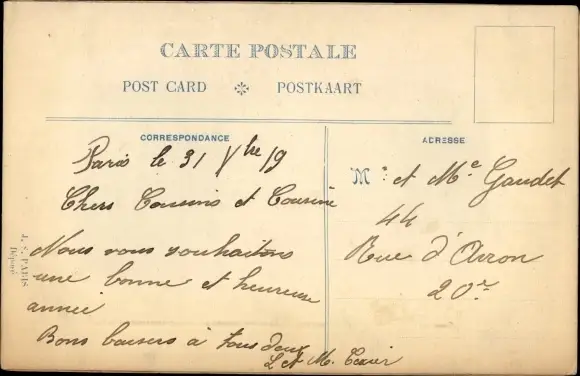 CARTE POSTALE
POST CARD ※ POSTKAART
CORRESPONDANCE
Paris le 31 Xbre 19
Chers Cousins et Cousine
Nous vous souhaitons
une bonne et heureuse
année
Bons baisers à tous deux
L et M. Texier
ADRESSE
M. et Me Gaudet
44
Rue d'Avron
20e
J. S. PARIS
Déposé